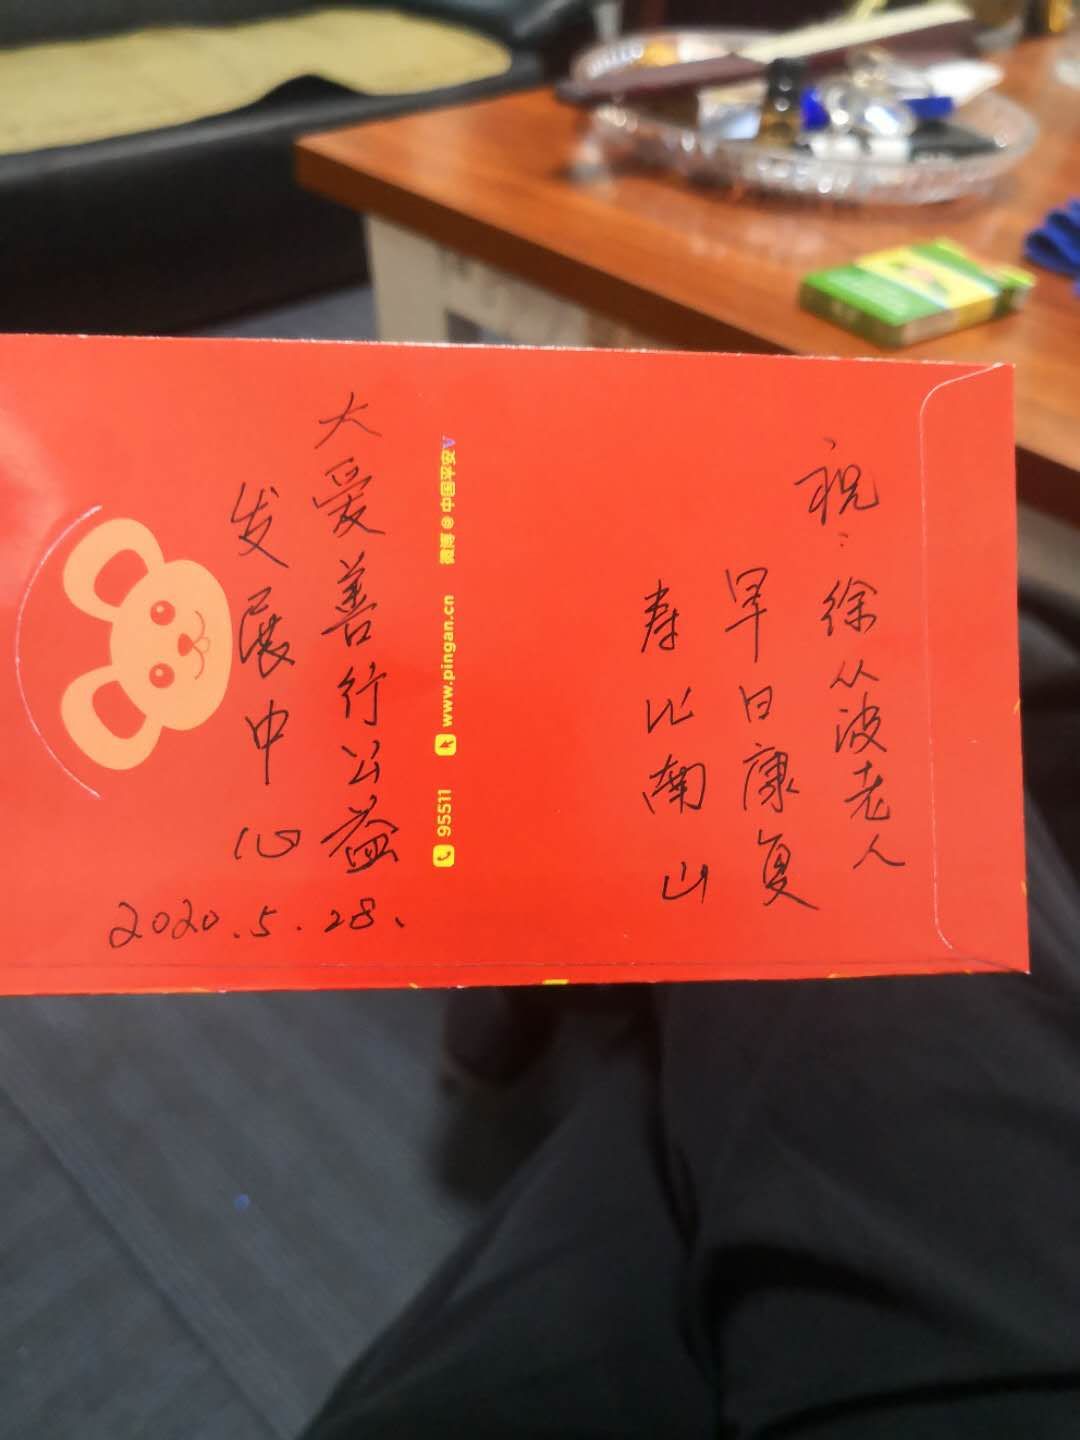 祝:徐从波老人
早日康复
寿比南山
微博@中国平安V
www.pingan.cn
95511
大爱善行公益
发展中心
2020.5.28.